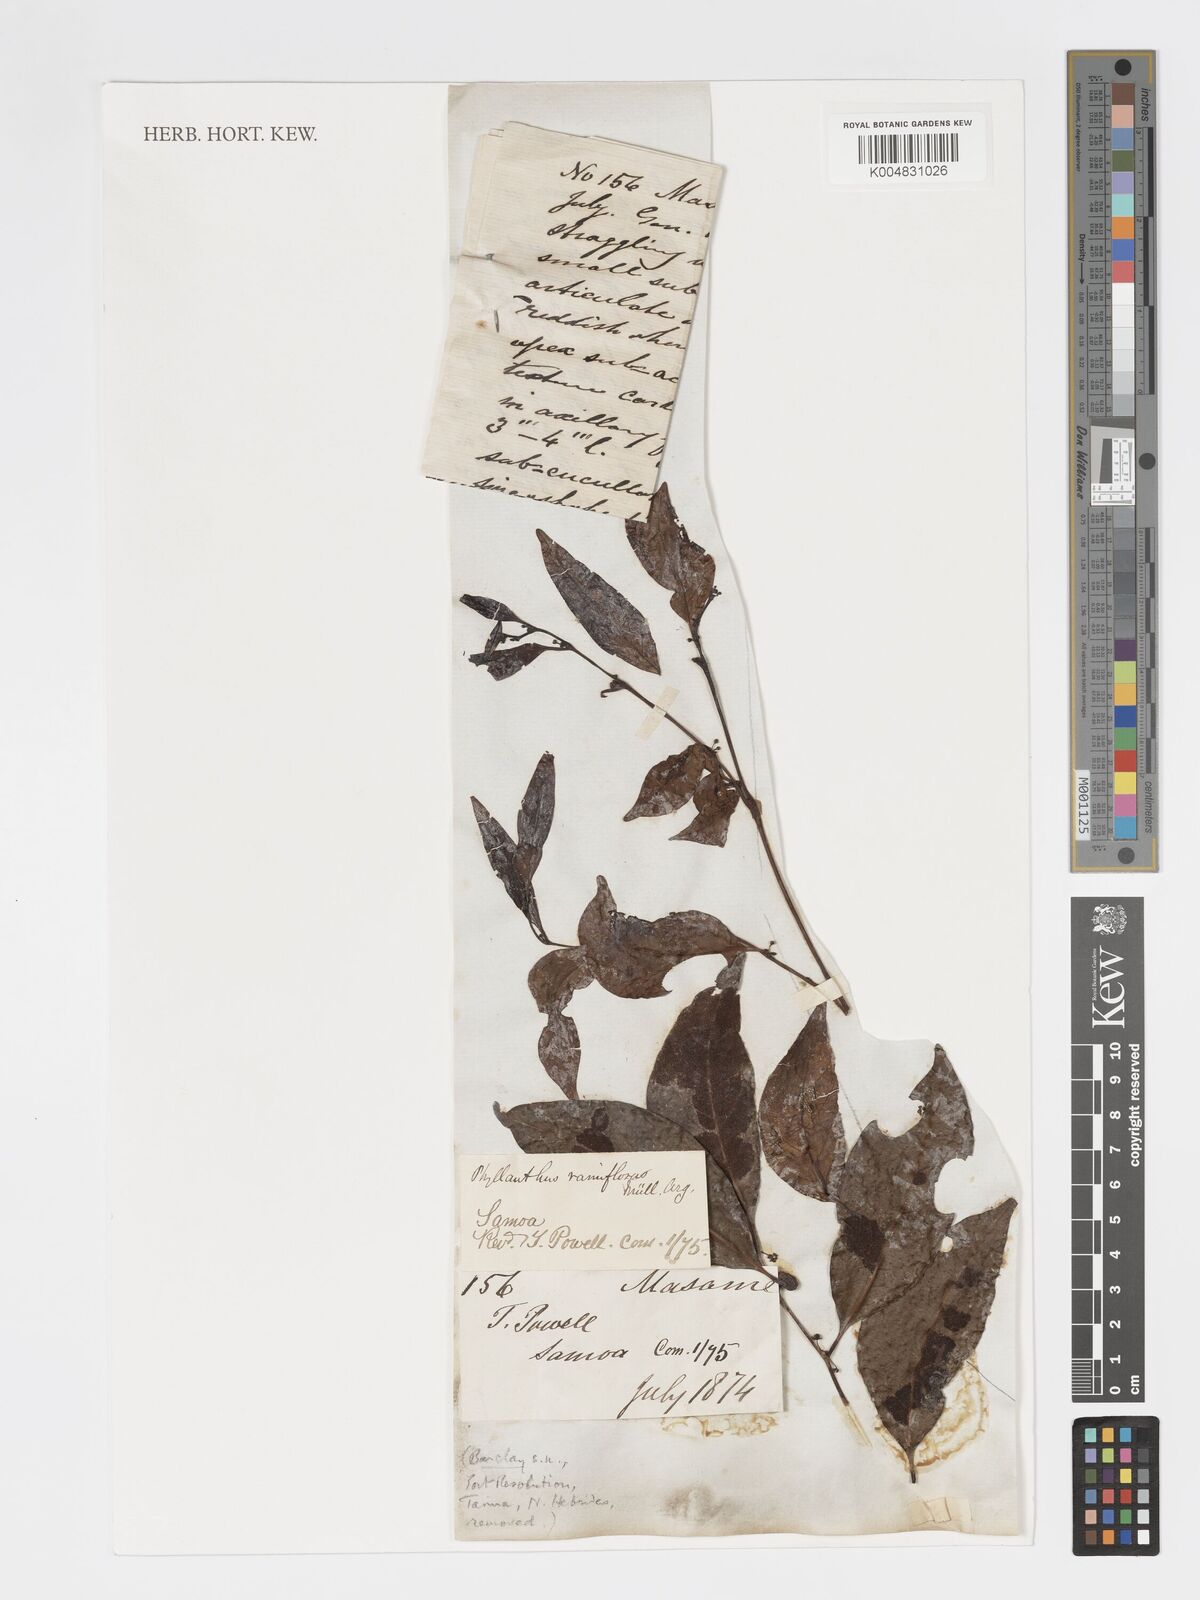 HERB. HORT. KEW.
ROYAL BOTANIC GARDENS KEW
K004831026
No 156 Mas
July. Gen.
straggling
small sub
articulate
reddish when
apex sub-ac
texture cor
in axillary
3''' - 4''' l.
sub-cucullat
Phyllanthus ramiflorus
Müll. Arg.
Samoa
Revd. T. Powell. Com. 1/75.
156 Masame
T. Powell
Samoa Com. 1/75
July 1874
(Barclay s.n.,
Port Resolution,
Tanna, N. Hebrides,
removed.)
inches
centimeters
Don Williams
M001125
Royal Botanic Gardens
Kew
0 1 2 3 4 5 6 7 8 9 10
cm
copyright reserved